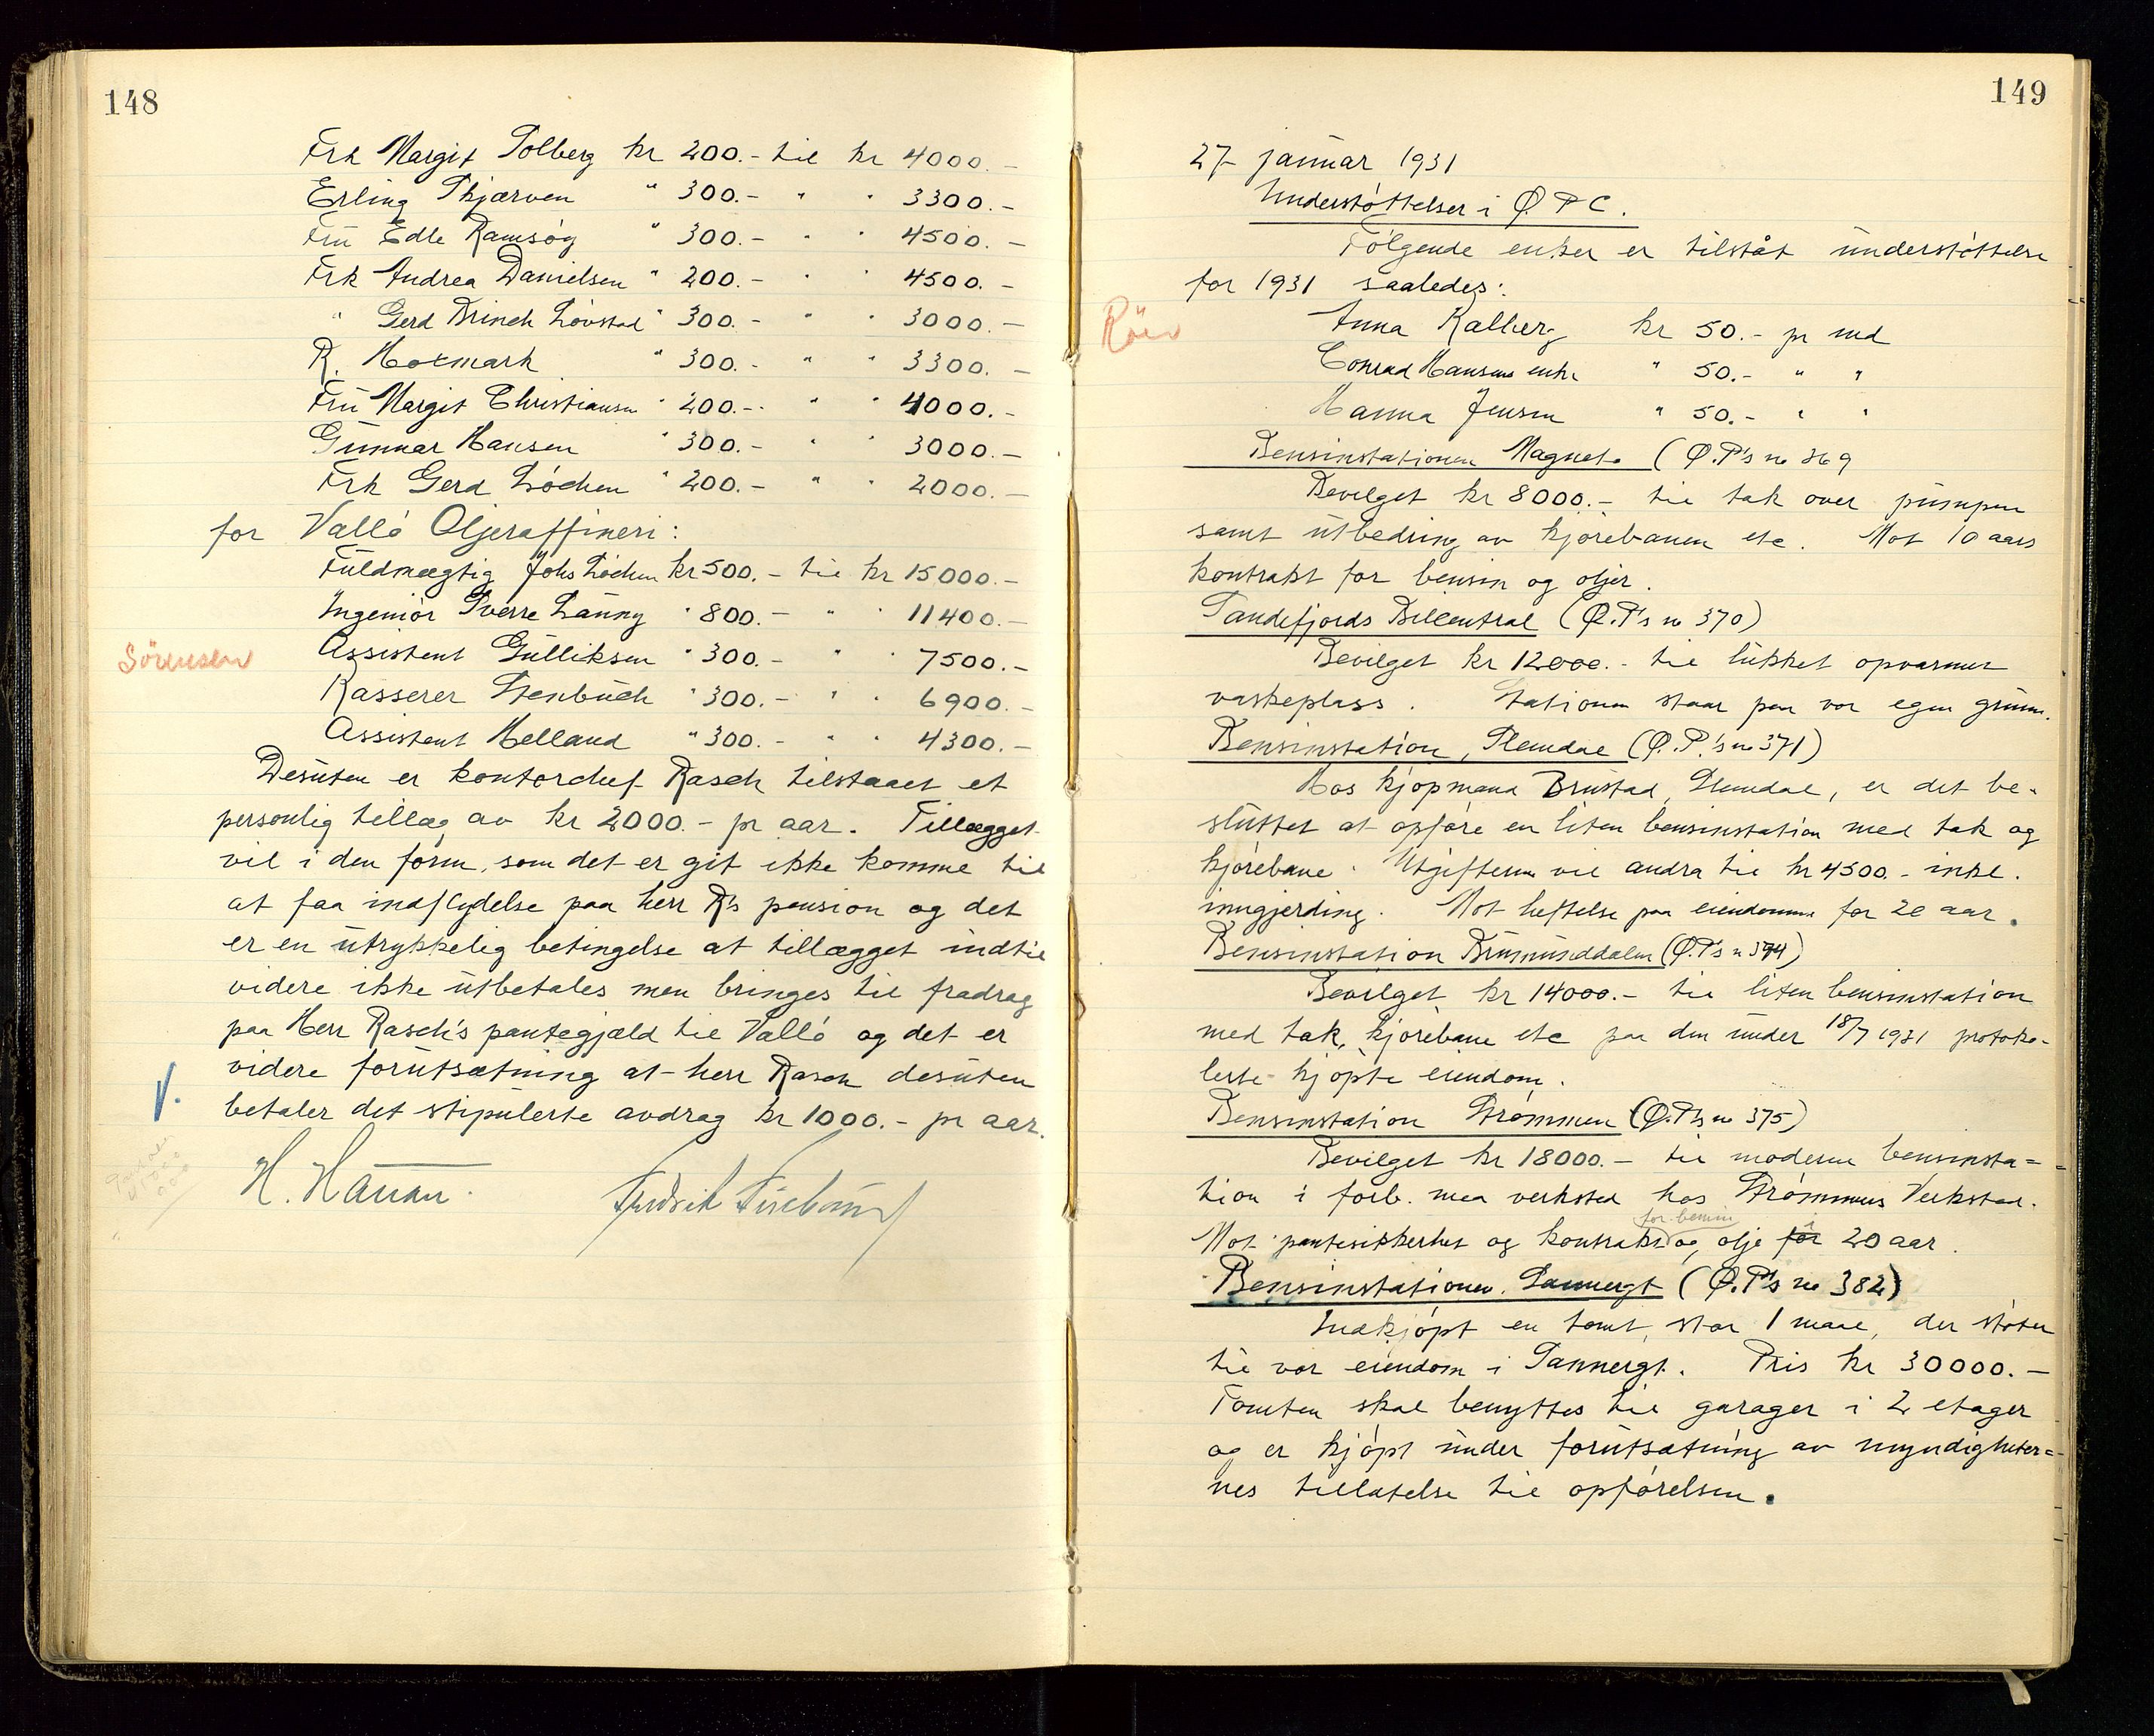 148
Frk Margit Solberg kr 200.- til kr 4000.-
Erling Skjærven " 300.- " " 3300.-
Fru Edle Ramsøy " 300.- " " 4500.-
Frk Andrea Danielsen " 200.- " " 4500.-
" Gerd Brinch Løvstad " 300.- " " 3000.-
R. Hotmark " 300.- " " 3300.-
Fru Margit Christiansen " 200.- " " 4000.-
Gunnar Hansen " 300.- " " 3000.-
Frk Gerd Løchen " 200.- " " 2000.-
for Vallø Oljeraffineri:
Fuldmægtig Johs Løchen kr 500.- til kr 15000.-
Ingeniør Sverre Lanny " 800.- " " 11400.-
Sörensen Assistent Gulliksen " 300.- " " 7500.-
Kasserer Stenbuch " 300.- " " 6900.-
Assistent Helland " 300.- " " 4300.-
Desuten er kontorchef Rasch tilstaaet et
personlig tillæg av kr 2000.- pr aar. Tillægget
vil i den form, som det er git ikke komme til
at faa indflydelse paa herr R's pension og det
er en utrykkelig betingelse at tillægget indtil
videre ikke utbetales men bringes til fradrag
paa Herr Rasch's pantegjæld til Vallø og det er
videre forutsætning at herr Rasch desuten
V. betaler det stipulerte avdrag kr 1000.- pr aar.
H. Fredrik
149
27 januar 1931
Understøttelser i Ø.P.C.
Følgende enker er tilståt understøttelse
for 1931 saaledes:
Anna Kalberg kr 50.- pr md
Conrad Hansens enke " 50.- " "
Hanna Jensen " 50.- " "
Bensinstationen Magnet. (Ø.P's no 369
Bevilget kr 8000.- til tak over pumpen
samt utbedring av kjørebanen etc. Mot 10 aars
kontrakt for bensin og oljer.
Sandefjords Bilcentral (Ø.P's no 370)
Bevilget kr 12000.- til lukket opvarmet
vaskeplass. Stationen staar paa vor egen grunn.
Bensinstation, Slemdal (Ø.P.'s no 371)
Hos kjøpmand Brustad, Slemdal, er det be-
sluttet at opføre en liten bensinstation med tak og
kjørebane. Utgiftene vil andra til kr 4500.- inkl.
inngjerding. Mot heftelse paa eiendommen for 20 aar.
Bensinstation Brumunddalen (Ø.P's n 374)
Bevilget kr 14000.- til liten bensinstation
med tak, kjørebane etc paa den under 18/7 1931 protoko-
lerte kjøpte eiendom.
Bensinstation Strømmen (Ø.P's no 375)
Bevilget kr 18000.- til moderne bensinsta=
tion i forb. med verksted hos Strømmens Verksted.
for bensin i
Mot pantesikkerhet og kontrakt og olje for 20 aar.
Bensinstationen. Sannergt (Ø.P's no 382)
Indkjøpt en tomt, stor 1 maal, der støter
til vor eiendom i Sannergt. Pris kr 30000.-
Tomten skal benyttes til garager i 2 etager
og er kjøpt under forutsætning av myndigheter=
nes tillatelse til opførelsen.